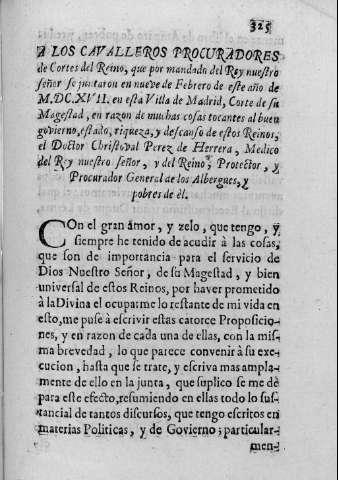 325
A LOS CAVALLEROS PROCURADORES
de Cortes del Reino, que por mandado del Rey nuestro
señor se juntaron en nueve de Febrero de este año de
M.DC.XVII. en esta Villa de Madrid, Corte de su
Magestad, en razon de muchas cosas tocantes al buen
govierno, estado, riqueza, y descanso de estos Reinos,
el Doctor Christoval Perez de Herrera, Medico
del Rey nuestro señor, y del Reino, Protector, y
Procurador General de los Albergues, y
pobres de èl.
COn el gran amor, y zelo, que tengo, y
siempre he tenido de acudir à las cosas,
que son de importancia para el servicio de
Dios Nuestro Señor, de su Magestad, y bien
universal de estos Reinos, por haver prometido
à la Divina el ocuparme lo restante de mi vida en
esto, me puse à escrivir estas catorce Proposicio-
nes, y en razon de cada una de ellas, con la mis-
ma brevedad, lo que parece convenir à su exe-
cucion, hasta que se trate, y escriva mas ampla-
mente de ello en la junta, que suplico se me dè
para este efecto, resumiendo en ellas todo lo sus-
tancial de tantos discursos, que tengo escritos en
materias Politicas, y de Govierno; particular-
men-